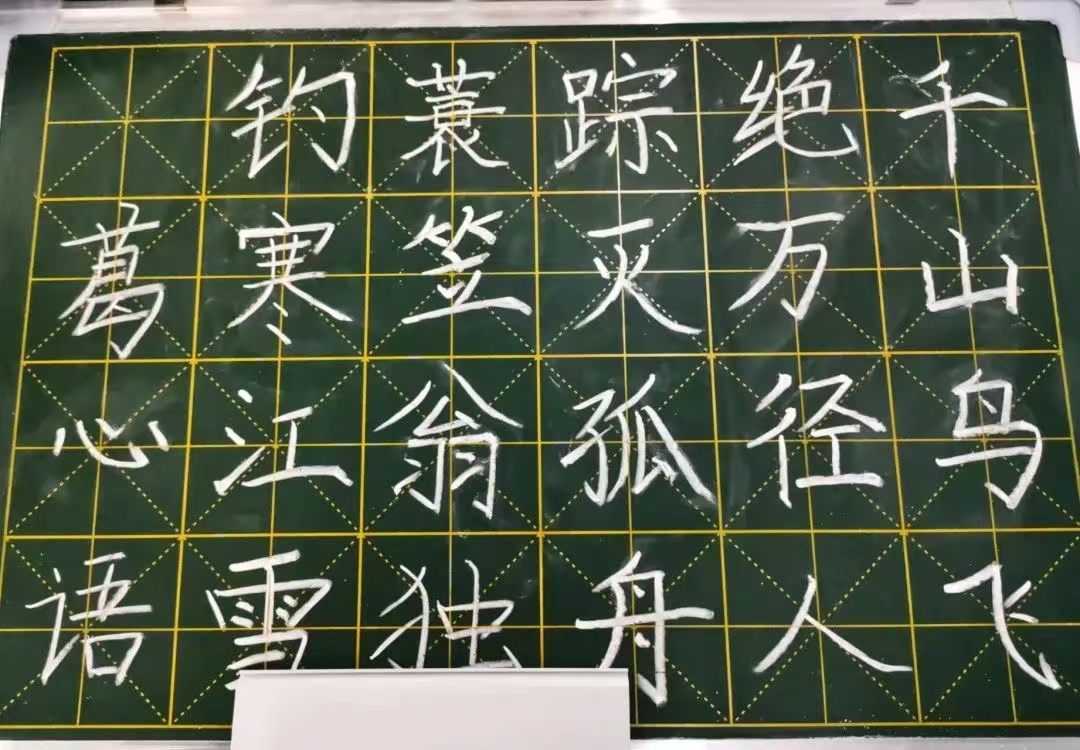 千山鸟飞
绝万径人
踪灭孤舟
蓑笠翁独
钓寒江雪
葛心语